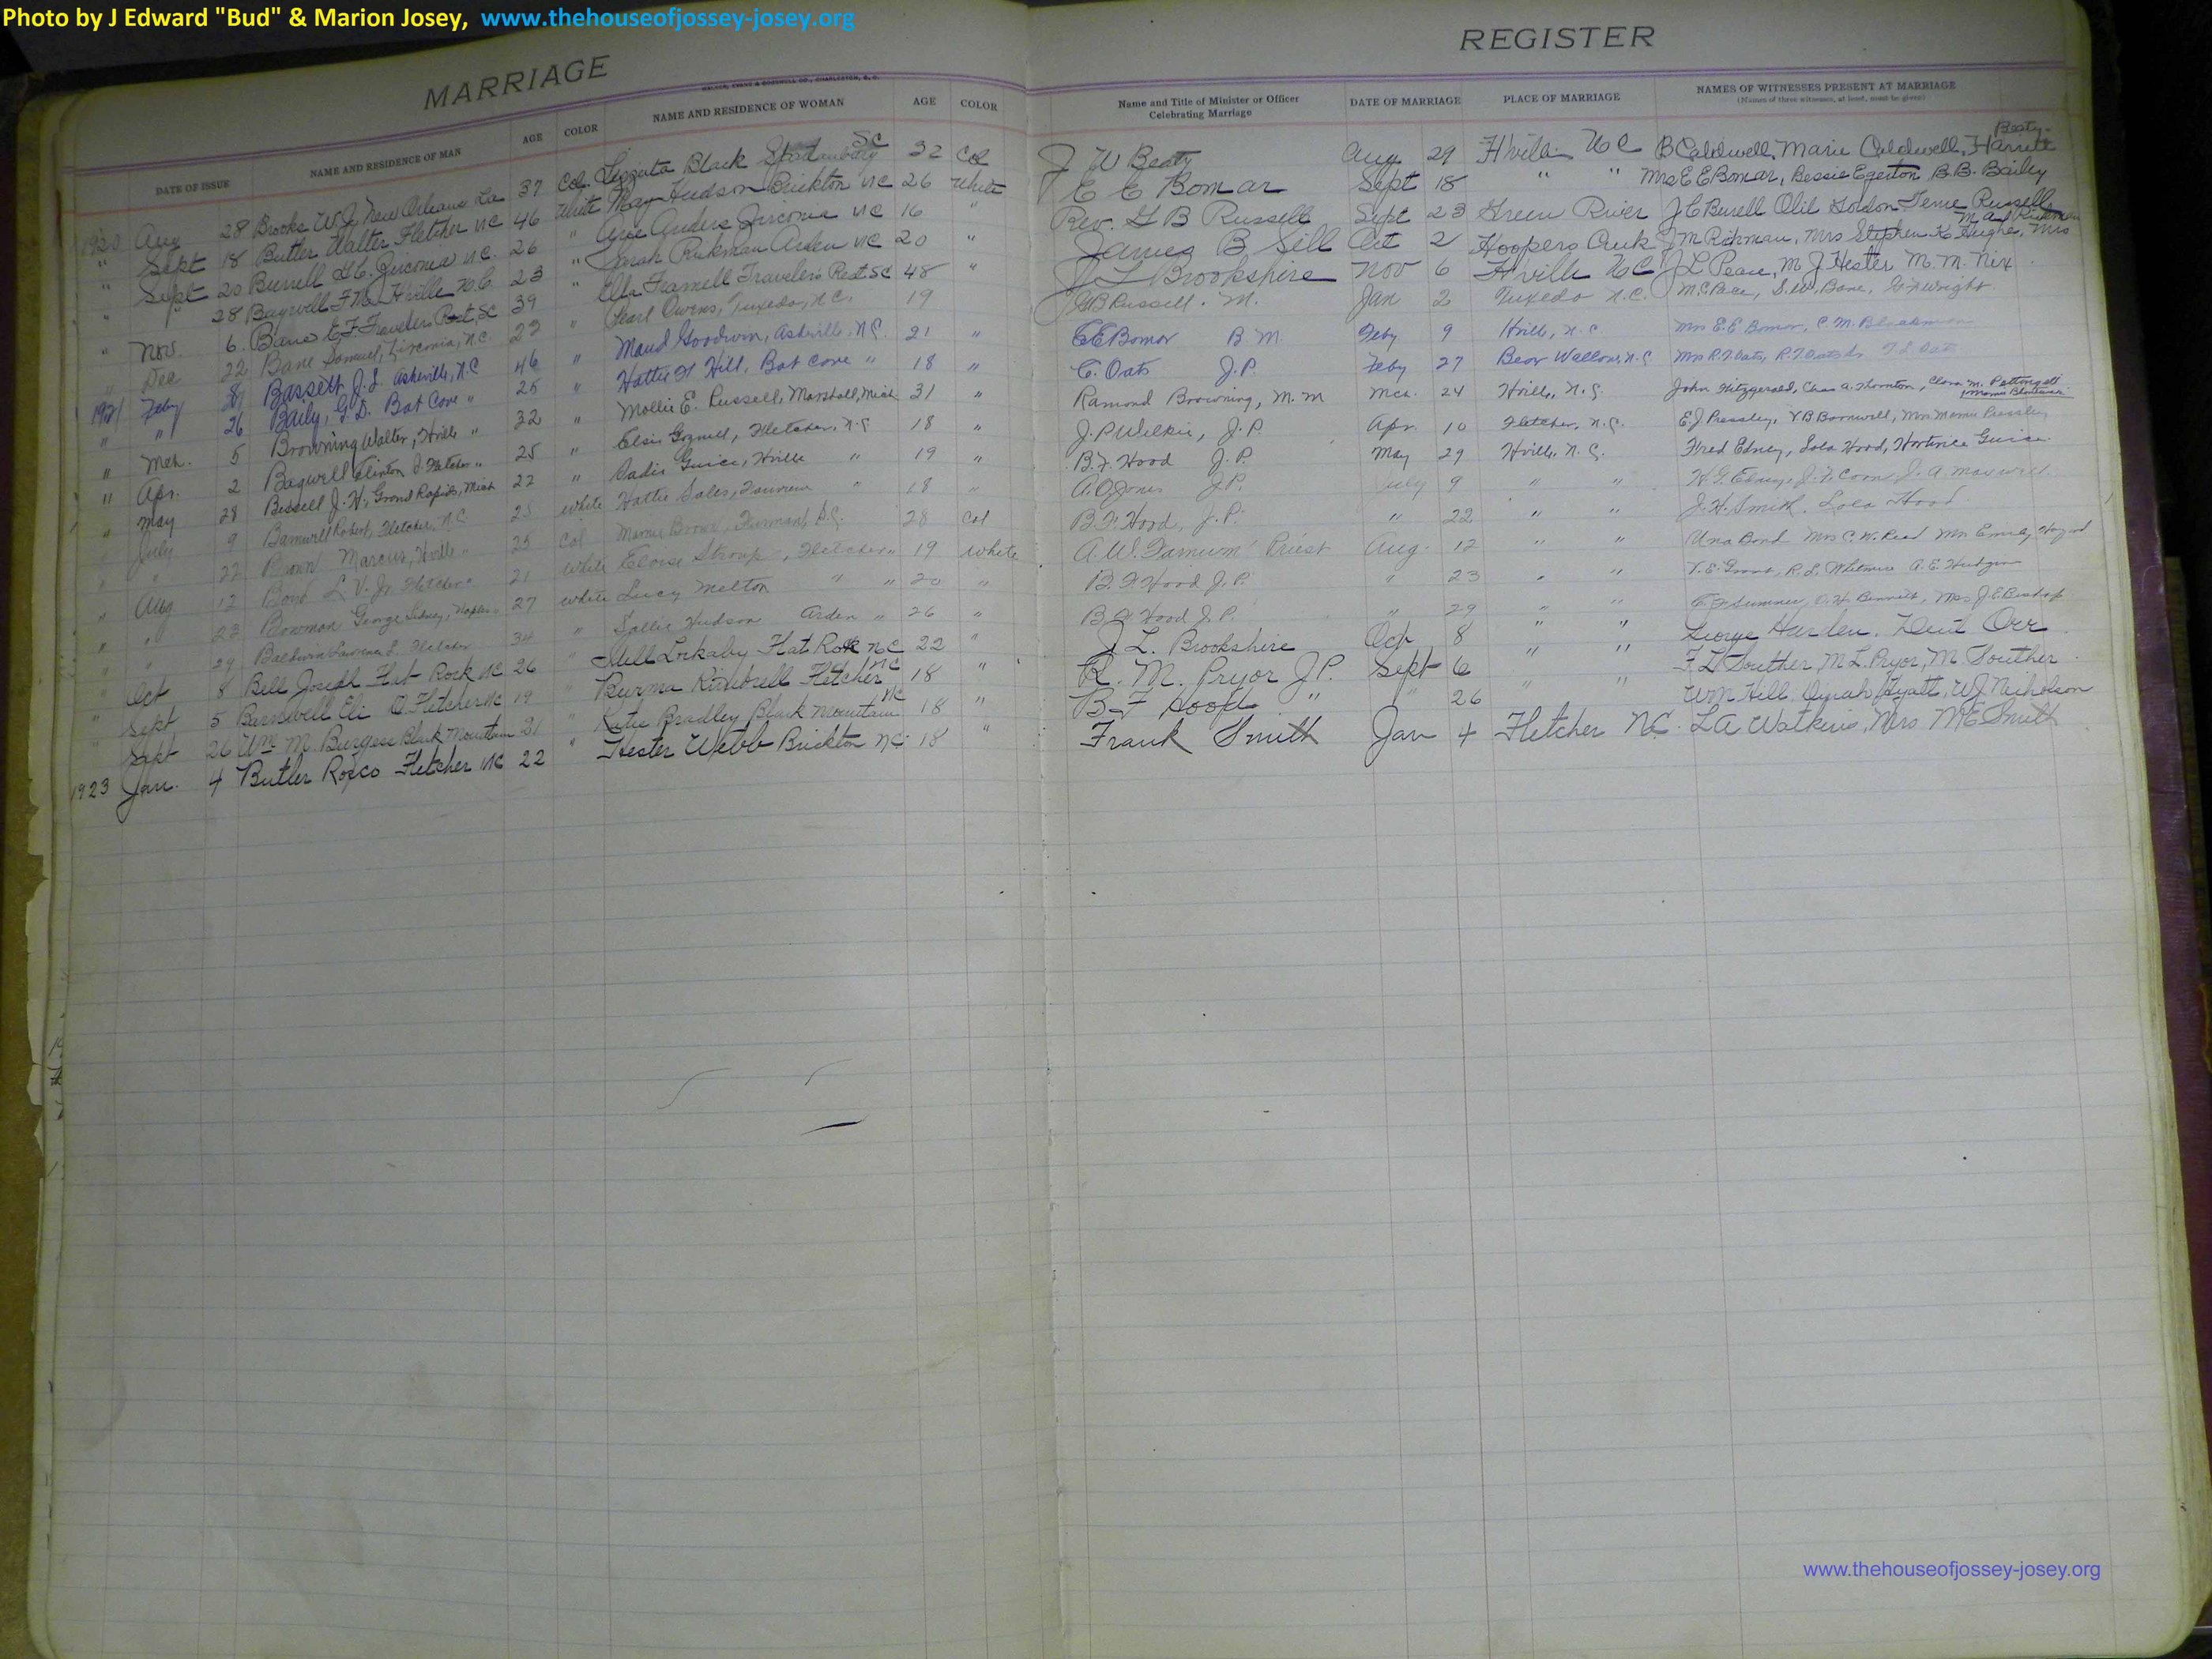 Photo by J Edward "Bud" & Marion Josey, www.thehouseofjossey-josey.org
MARRIAGE
WALKER, EVANS & COGSWELL CO., CHARLESTON, S. C.
DATE OF ISSUE NAME AND RESIDENCE OF MAN AGE COLOR NAME AND RESIDENCE OF WOMAN AGE COLOR
1920 Aug 28 Brooks W.J. New Orleans La 37 Col. Black Spartanburg SC 32 Col
" Sept 18 Butler Walter Fletcher NC 46 White May Hudson Brickton NC 26 White
" Sept 20 Burrell Zirconia N.C. 26 " Anders Zirconia NC 16 "
" " 28 Hville N.C. 23 " Rickman Arden NC 20 "
" Nov. 6 Bane E.F. Travelers Rest, SC 39 " Ella Travelers Rest SC 48 "
" Dec 22 Bane Samuel, Zirconia, N.C. 22 " Pearl Owens, Tuxedo, N.C. 19
1921 Feby 8 Bassett J.L. Asheville, N.C 46 " Maud Goodwin, Asheville, N.C. 21 "
" " 26 Baily, G.D. Bat Cove " 25 " Hattie Hill, Bat Cove " 18 "
" Mch. 5 Browning Walter, Hville " 32 " Mollie E. Russell, Marshall, Mich 31 "
" Apr. 2 Bagwell Clinton Fletcher " 25 " Elsie Fletcher, N.C 18 "
" May 28 Bissell J.H., Grand Rapids, Mich 22 " Sadie Guice, Hville " 19 "
" July 9 Barnwell Robert, Fletcher, N.C. 25 white Hattie Sales, " 18 "
" " 22 Brown Marcus, Hville " 25 Col Mamie Brown, Furman, S.C. 28 Col
" Aug 12 Boyd L.V. Jr. Fletcher " 21 white Eloise Stroup, Fletcher " 19 white
" " 23 Bowman George Sidney, Naples " 27 white Lucy Melton " " 20 "
" " 29 Baldwin Lawrence L. Fletcher 34 " Sallie Hudson Arden " 26 "
" Oct 8 Bell Joseph Flat Rock NC 26 " Lockaby Flat Rock NC 22 "
" Sept 5 Barnwell Eli O Fletcher NC 19 " Burma Kimbrell Fletcher NC 18 "
" Sept 26 Wm M. Burgess Black Mountain 21 " Katie Bradley Black Mountain NC 18 "
1923 Jan. 4 Butler Rosco Fletcher NC 22 " Hester Webb Brickton NC. 18 "
REGISTER
Name and Title of Minister or Officer Celebrating Marriage DATE OF MARRIAGE PLACE OF MARRIAGE NAMES OF WITNESSES PRESENT AT MARRIAGE
(Names of three witnesses, at least, must be given)
J W Beaty Aug 29 Hville NC B Caldwell, Marie Caldwell, Harriett Beaty
E E Bomar Sept 18 " " Mrs E E Bomar, Bessie Egerton B.B. Bailey
Rev. G B Russell Sept 23 Green River J C Burrell Gordon Russell
James B Sill Oct 2 Hoopers Creek J M Rickman, Mrs Stephen Mrs
J L Brookshire Nov 6 Hville NC J L Peace, M J Hester M.M. Nix
G B Russell. M. Jan 2 Tuxedo N.C. M.C. Pace, S.W. Bane, Wright.
E E Bomar B M. Feby 9 Hville, N.C Mrs E.E. Bomar, C.M.
C. Oats J.P. Feby 27 Bear Wallow, N.C Mrs R.T. Oats,
Ramond Browning, M.M Mch. 24 Hville, N.C. John Fitzgerald, Chas A. Thornton, Clara M.
J.P. Wilkie, J.P. Apr. 10 Fletcher, N.C. E.J. Pressley, V B Barnwell, Mrs Mamie Pressley
B.F. Hood J.P. May 29 Hville, N.C. Fred Edney, Lola Hood, Hortense Guice.
A.O. Jones J.P. July 9 " " Edney, J.F. Coon, J.A. Maxwell
B.F. Hood, J.P. " 22 " " J.H. Smith. Lola Hood
A.W. Farnum Priest Aug. 12 " " Una Bond Mrs C.W. Reed Mrs Emily
B.F. Hood J.P. " 23 " " R.L. Whitmire A.E. Hudgins
B.F. Hood J.P. " 29 " " Sumner, Bennett, Mrs J.E. Bishop
J. L. Brookshire Oct 8 " " George Harden. Orr
R. M. Pryor J.P. Sept 6 " " F L Souther, M L Pryor, M. Souther
B F Hood " " 26 " " Wm Hill. Dinah Hyatt, W J Nicholson
Frank Smith Jan 4 Fletcher NC. L A Watkins, Mrs M E Smith
www.thehouseofjossey-josey.org